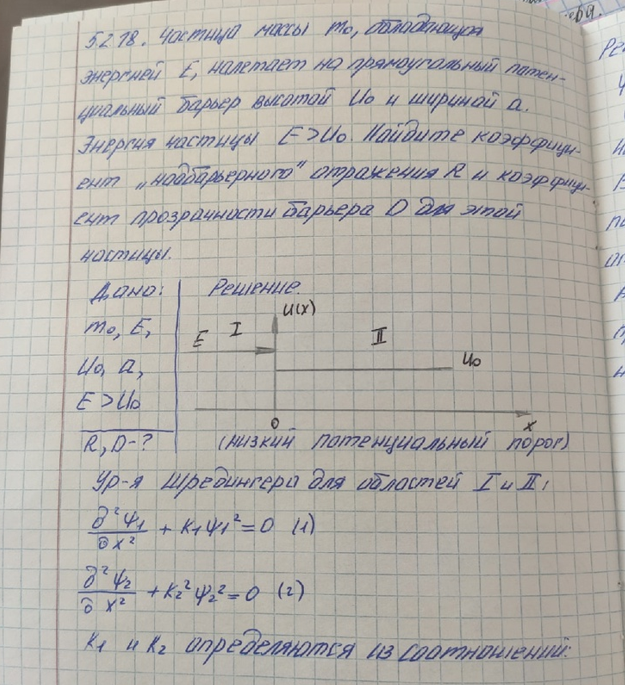 5.2.18. Частица массы m₀, обладающая
энергией E, налетает на прямоугольный потен-
циальный барьер высотой U₀ и шириной a.
Энергия частицы E > U₀. Найдите коэффици-
ент „надбарьерного" отражения R и коэффици-
ент прозрачности барьера D для этой
частицы.
Дано: Решение.
m₀, E,
U₀, a,
E > U₀
R, D - ?
U(x)
E I II
U₀
0 x
(низкий потенциальный порог)
Ур-я Шредингера для областей I и II:
∂²ψ₁/∂x² + K₁ψ₁² = 0 (1)
∂²ψ₂/∂x² + K₂²ψ₂² = 0 (2)
K₁ и K₂ определяются из соотношений: